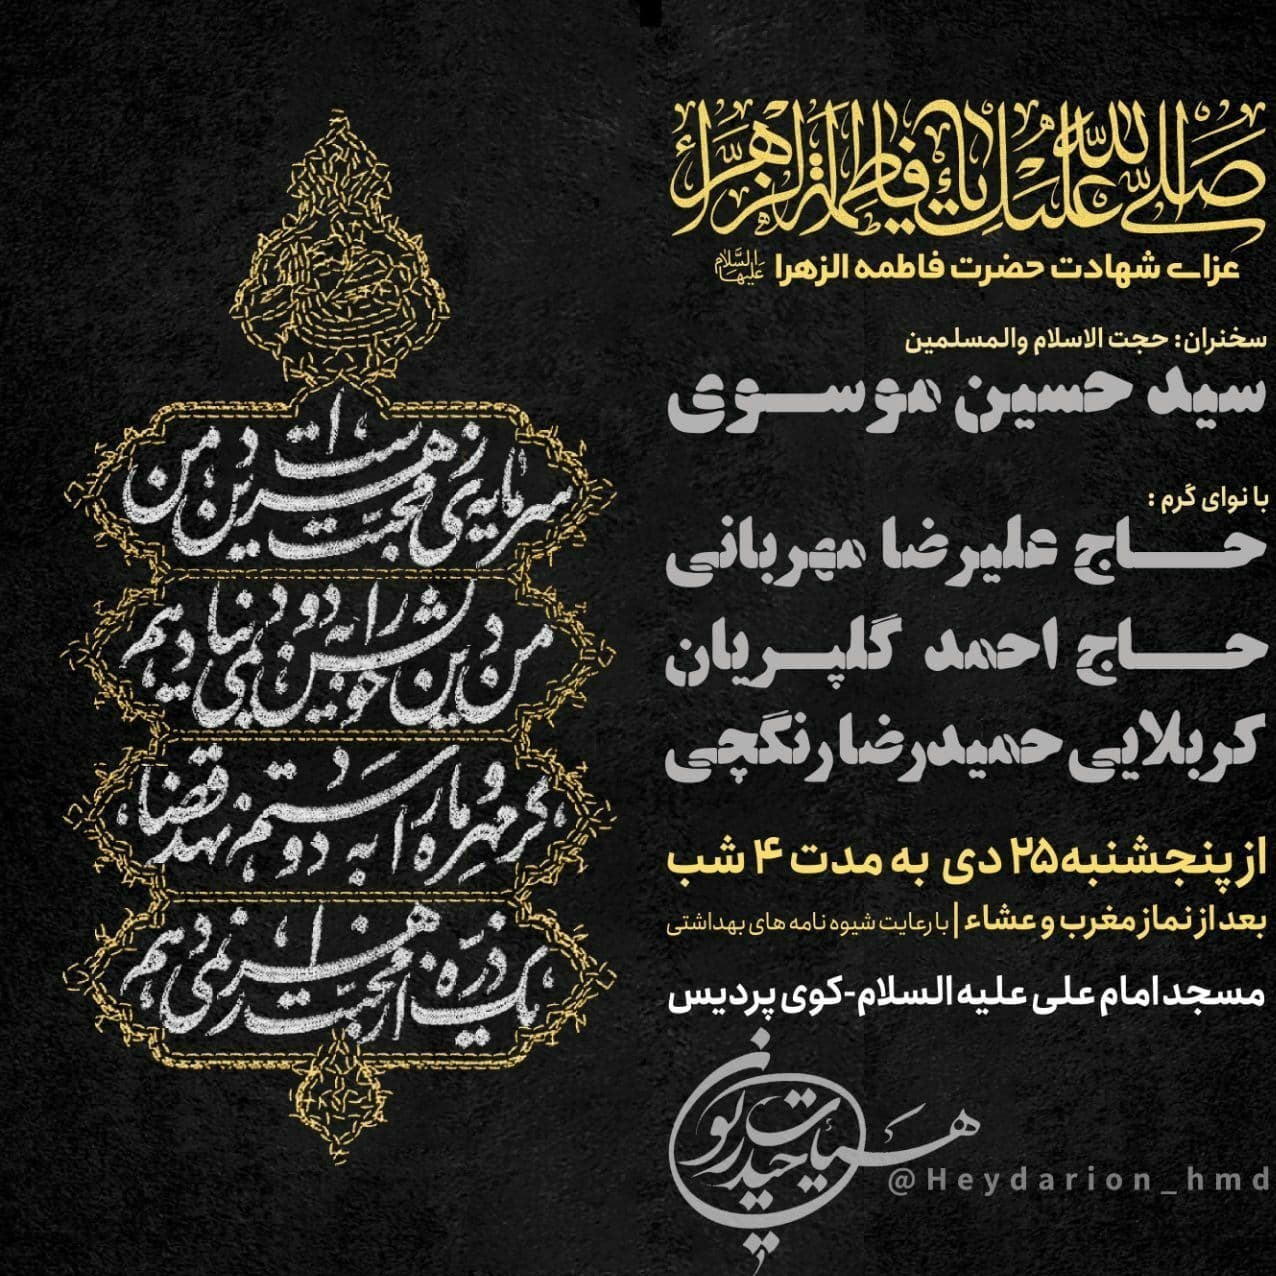 صلی الله علیك یا فاطمة الزهراء
عزاے شهادت حضرت فاطمه الزهرا علیها السلام
سخنران: حجت الاسلام والمسلمین
سید حسین موسوی
با نوای گرم :
حاج علیرضا مهربانی
حاج احمد گلپریان
کربلایی حمیدرضا رنگچی
از پنجشنبه ۲۵ دی به مدت ۴ شب
بعد از نماز مغرب و عشاء | با رعایت شیوه نامه های بهداشتی
مسجد امام علی علیه السلام-کوی پردیس
هیات حیدریون
@Heydarion_hmd
سرمایه‌ی محبت زهراست دین من
من دین خویش را به دو دنیا نمی دهم
گر مهر و ماه را به دو دستم نهد قضا
یک ذره از محبت زهرا نمی دهم